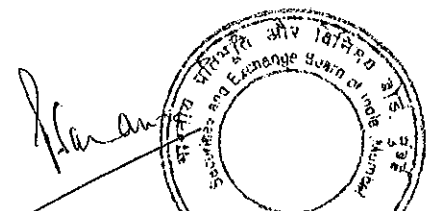 भारतीय प्रतिभूति और विनिमय बोर्ड
Securities and Exchange Board of India Mumbai